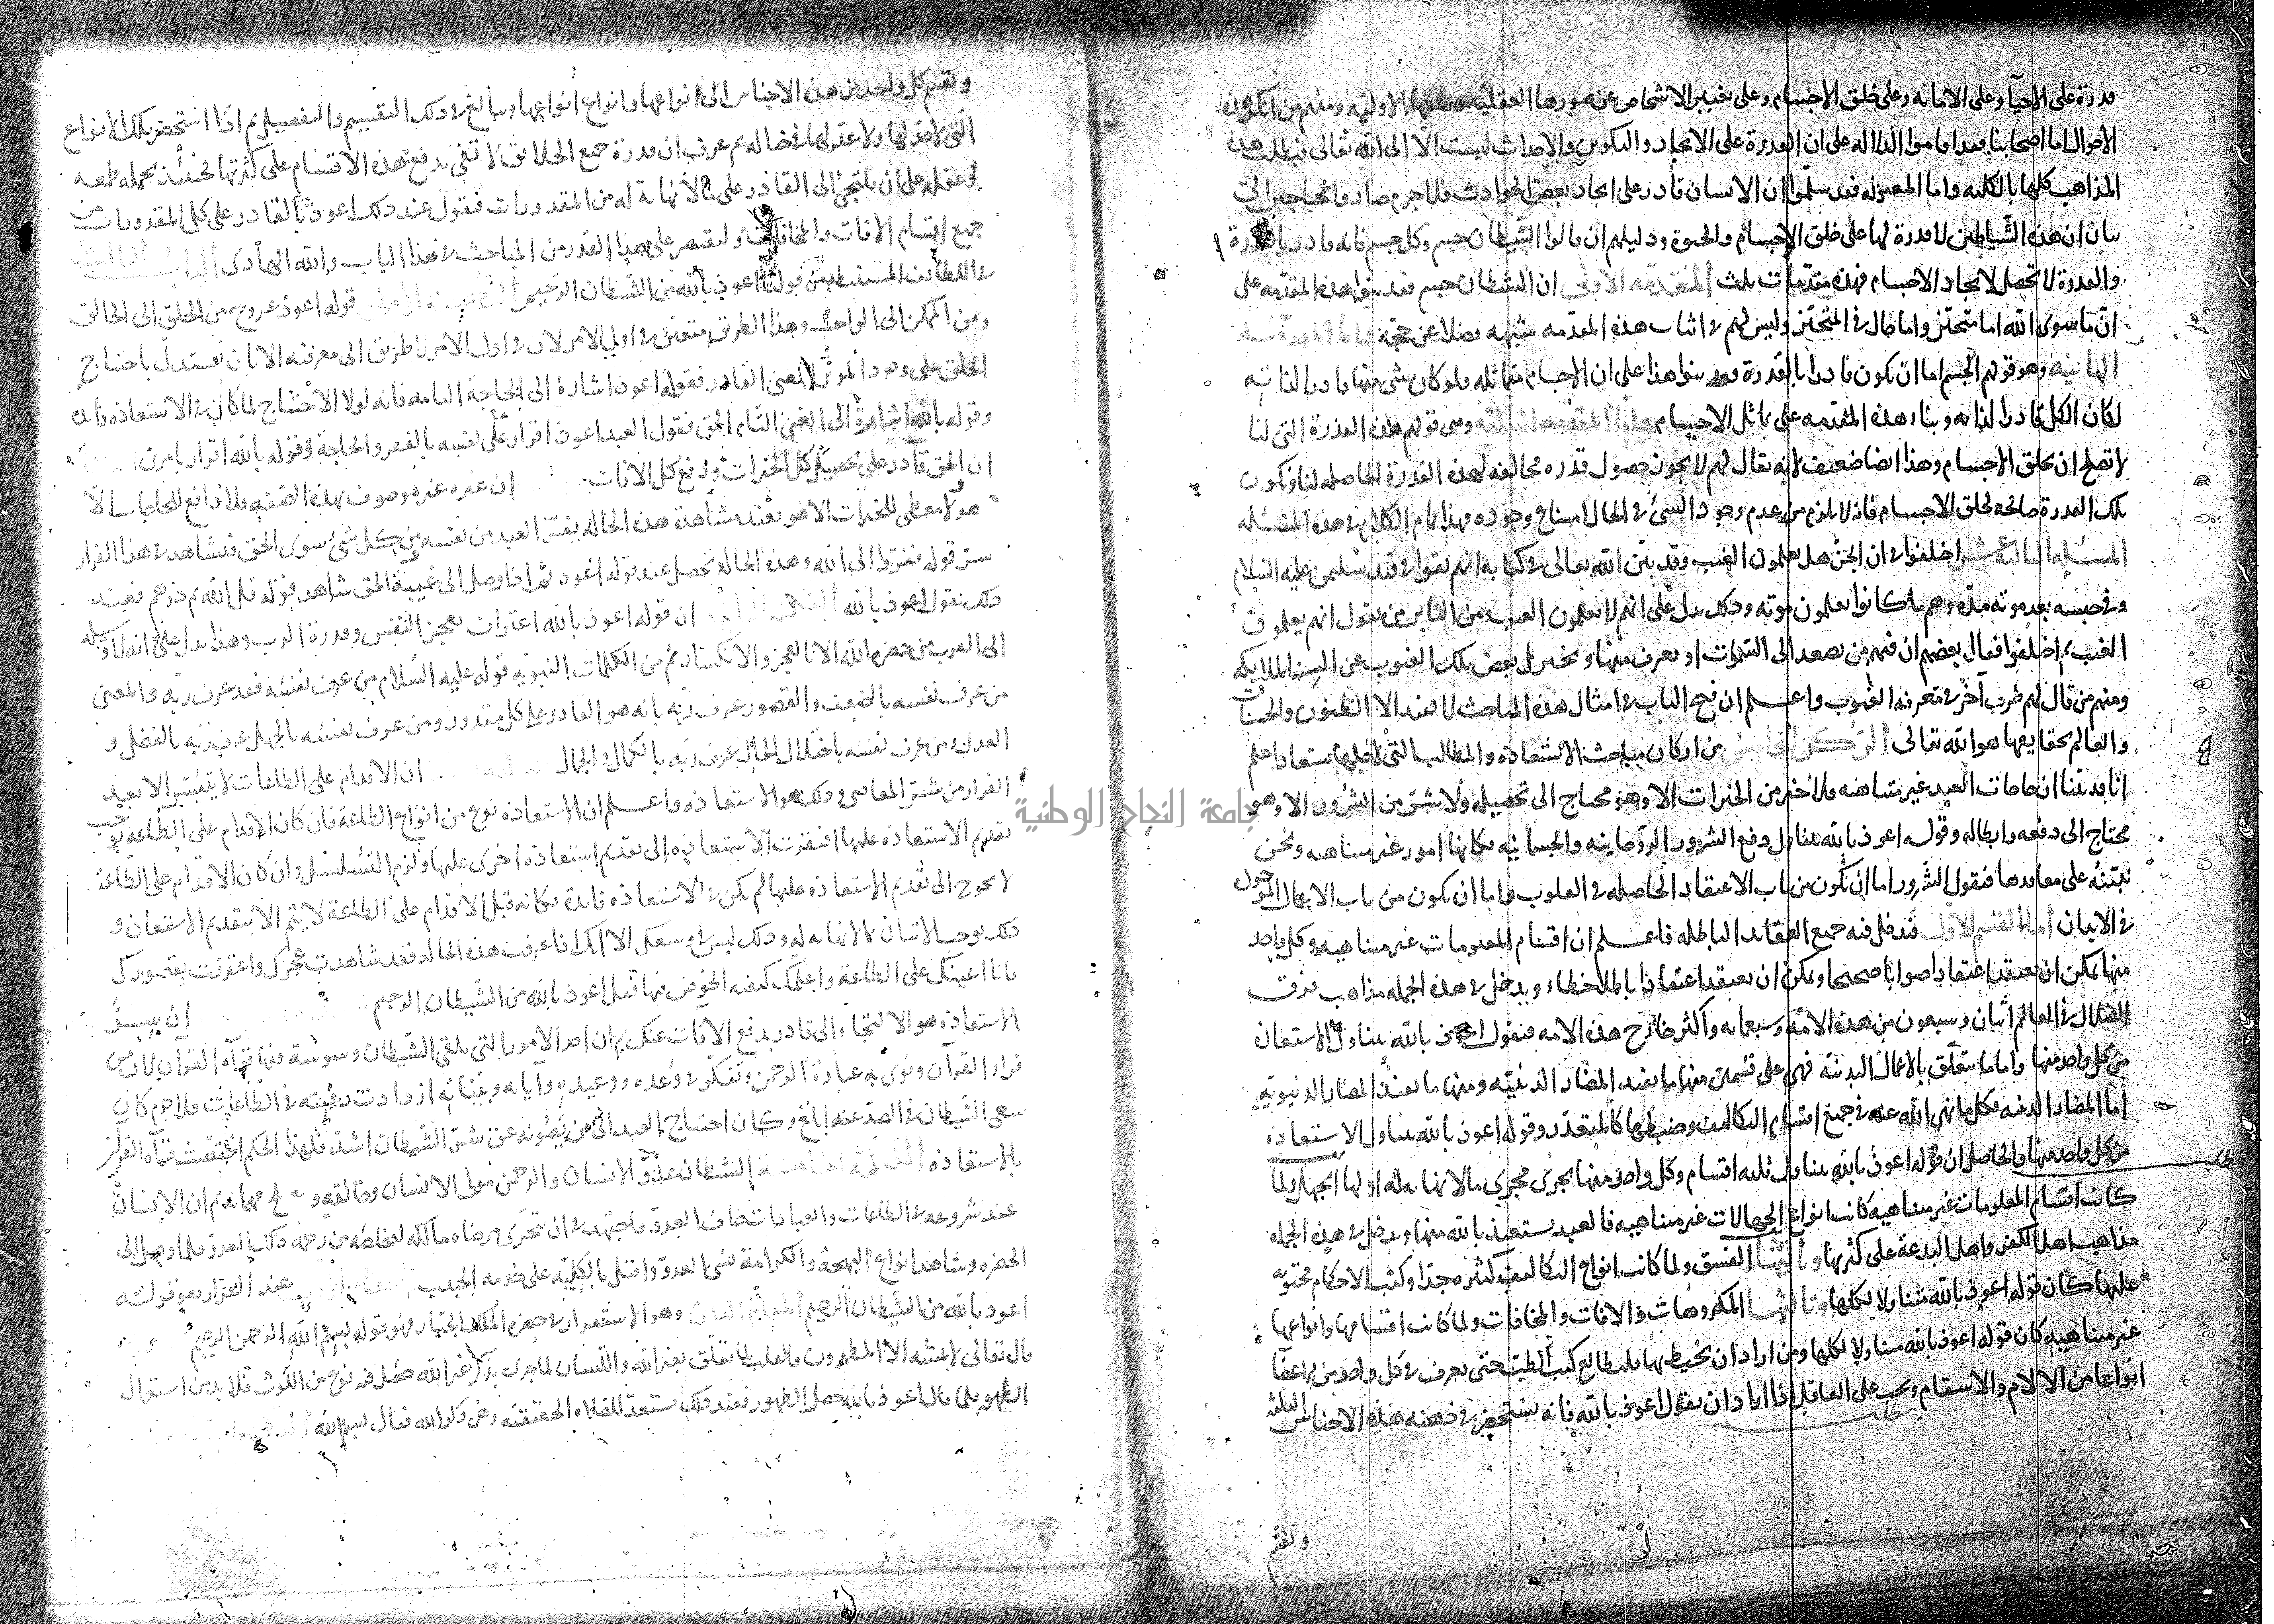 قدرة على الاحيا وعلى الاماته وعلى خلق الاجسام وعلى تغيير الاشخاص عن صورها العقليه وخلقتها الاوليه ومنهم من انكر هذه
الاحوال اما اصحابنا فقد اقاموا الدلاله على ان القدرة على الايجاد والتكوين والاحداث ليست الا الى الله تعالى فبطلت هذه
المذاهب كلها بالكليه واما المعتزله فقد سلموا ان الانسان قادر على ايجاد بعض الحوادث فلا جرم صاروا محتاجين الى
بيان ان هذه الشياطين لا قدرة لها على خلق الاجسام والحيوة ودليلهم ان قالوا الشيطان جسم وكل جسم فانه قادر بالقدرة
والقدرة لا تصلح لايجاد الاجسام فهذه مقدمات ثلث المقدمه الاولى ان الشيطان جسم فقد بنوا هذه المقدمه على
ان ما سوى الله اما متحيز واما حال في المتحيز وليس لهم في اثبات هذه المقدمه شبهه فضلا عن حجة واما المقدمه
الثانيه وهو قولهم الجسم اما ان يكون قادرا بالقدرة فقد بنوا هذا على ان الاجسام متماثله فلو كان شى منها قادرا لذاته
لكان الكل قادرا لذاته وبناء هذه المقدمه على تماثل الاجسام واما المقدمه الثالثه وهى قولهم هذه القدرة التى لنا
لا تصلح ان تخلق الاجسام وهذا ايضا ضعيف لانه يقال لهم لا يجوز حصول قدره مخالفه لهذه القدرة الحاصله لنا وتكون
تلك القدرة صالحه لخلق الاجسام فانه لا يلزم من عدم وجود الشئ في الحال امتناع وجوده فهذا تمام الكلام في هذه المسئله
المسئله اختلفوا في ان الجن هل يعلمون الغيب وقد بين الله تعالى في كتابه انهم بقوا في قيد سليمن عليه السلام
وفي حبسه بعد موته مدة وهم ما كانوا يعلمون موته وذلك يدل على انهم لا يعلمون الغيب ومن الناس من يقول انهم يعلمون
الغيب ثم اختلفوا فقال بعضهم ان فيهم من يصعد الى السموات او يعرف منها ويخبر بعض تلك الغيوب عن السنة الملايكه
ومنهم من قال لهم طرق آخر في معرفة الغيوب واعلم ان فتح الباب في امثال هذه المباحث لا يفيد الا الظنون والحسبانات
والعالم بحقايقها هو الله تعالى الركن الخامس من اركان مباحث الاستعاذه والمطالب التى لاجلها يستعاذ اعلم
انا قد بينا ان حاجات العبد غير متناهيه فلا خير من الخيرات الا وهو محتاج الى تحصيله ولا شئ من الشرور الا وهو
محتاج الى دفعه وابطاله وقوله اعوذ بالله يتناول دفع الشرور الروحانيه والجسمانيه وكانها امور غير متناهيه ونحن
ننبه على معاقدها فنقول الشرور اما ان تكون من باب الاعتقاد الحاصله في القلوب واما ان يكون من باب الاعمال الموجوده
في الابدان اما القسم الاول فيدخل فيه جميع العقايد الباطله فاعلم ان اقسام المعلومات غير متناهيه وكل واحد
منها يمكن ان يعتقد اعتقادا صوابا صحيحا ويمكن ان يعتقد اعتقادا باطلا خطاء ويدخل في هذه الجمله مذاهب فرق
الضلال في العالم اثنان وسبعون من هذه الامه وسبعمايه واكثر خارج هذه الامه فنقول اعوذ بالله يتناول الاستعاذه
من كل واحد منها واما ما يتعلق بالاعمال البدنيه فهى على قسمين منها ما يفيد المضار الدينيه ومنها ما يفيد المضار الدنيويه
اما المضار الدينيه فكل ما نهى الله عنه في جميع اقسام التكاليف وضبطها كالمتعذر وقوله اعوذ بالله يتناول الاستعاذة
من كل واحد منها والحاصل ان قوله اعوذ بالله يتناول ثلثه اقسام وكل واحد منها يجرى مجرى ما لا نهايه له اولها الجهل ولما
كانت اقسام المعلومات غير متناهيه كانت انواع الجهالات غير متناهيه فالعبد يستعيذ بالله منها ويدخل في هذه الجمله
مذاهب اهل الكفر واهل البدعة على كثرتها وثانيها الفسق ولما كانت انواع التكاليف كثيره جدا وكتب الاحكام محتويه
عليها كان قوله اعوذ بالله متناولا لكلها وثالثها المكروهات والافات والمخافات ولما كانت اقسامها وانواعها
غير متناهيه كان قوله اعوذ بالله متناولا لكلها ومن اراد ان يحيط بها فليطالع كتب الطب حتى يعرف في كل واحد من الاعضا
انواعا من الالام والاسقام ويجب على العاقل اذا اراد ان يقول اعوذ بالله فانه يستحضر في ذهنه هذه الاجناس الثلثه
وتقسم
وتقسم كل واحد من هذه الاجناس الى انواعها وانواع انواعها ويبالغ في ذلك التقسيم والتفصيل ثم اذا استحضر تلك الانواع
التى لا حد لها ولا عد لها في خياله ثم عرف ان قدرة جميع الخلايق لا تفى بدفع هذه الاقسام على كثرتها فحينئذ يحمله طبعه
وعقله على ان يلتجئ الى القادر على ما لا نهاية له من المقدورات فيقول عند ذلك اعوذ بالقادر على كل المقدورات من
جميع اقسام الافات والمخافات ولنقتصر على هذا القدر من المباحث في هذا الباب والله الهادى
في اللطائف المستنبطه من قولنا اعوذ بالله من الشيطان الرجيم قوله اعوذ عروج من الخلق الى الخالق
ومن الممكن الى الواجب وهذا الطريق متعين في اول الامر لان في اول الامر لا طريق الى معرفته الا بان نستدل باحتياج
الخلق على وجود المؤثر الغنى القادر فقوله اعوذ اشارة الى الحاجة التامه فانه لولا الاحتياج لما كان في الاستعاذه فايده
وقوله بالله اشارة الى الغنى التام الحق فقول العبد اعوذ اقرار على نفسه بالفقر والحاجة وقوله بالله اقرار بامرين
ان الحق قادر على تحصيل كل الخيرات ودفع كل الافات ان غيره غير موصوف بهذه الصفه فلا دافع للحاجات الا
هو ولا معطى للخيرات الا هو فعند مشاهدة هذه الحاله يفر العبد من نفسه ومن كل شئ سوى الحق فيشاهد في هذا الفرار
سر قوله ففروا الى الله وهذه الحاله تحصل عند قوله اعوذ ثم اذا وصل الى غيبة الحق شاهد قوله قل الله ثم ذرهم فعند
ذلك يقول اعوذ بالله ان قوله اعوذ بالله اعتراف بعجز النفس وقدرة الرب وهذا يدل على انه لا وسيله
الى القرب من حضرة الله الا بالعجز والانكسار ثم من الكلمات النبويه قوله عليه السلام من عرف نفسه فقد عرف ربه والمعنى
من عرف نفسه بالضعف والقصور عرف ربه بانه هو القادر على كل مقدور ومن عرف نفسه بالجهل عرف ربه بالفضل و
العدل ومن عرف نفسه باختلال الحال عرف ربه بالكمال والجلال ان الاقدام على الطاعات لا يتيسر الا بعد
الفرار من شر المعاصى وذلك هو الاستعاذه واعلم ان الاستعاذه نوع من انواع الطاعة فان كان الاقدام على الطاعه يوجب
تقديم الاستعاذة عليها افتقرت الاستعاذه الى تقديم استعاذه اخرى عليها ولزم التسلسل وان كان الاقدام على الطاعة
لا يحوج الى تقديم الاستعاذه عليها لم يكن في الاستعاذه فايدة فكانه قيل الاقدام على الطاعة لا يتم الا بتقديم الاستعاذه و
ذلك يوجب الاتيان بما لا نهايه له وذلك ليس في وسعك الا انك اذا عرفت هذه الحاله فقد شاهدت عجزك واعترفت بقصورك
فانا اعينك على الطاعة واعلمك كيفيه الخوض فيها فقل اعوذ بالله من الشيطان الرجيم ان سر
الاستعاذه هو الالتجاء الى قادر يدفع الآفات عنك ثم ان احد الامور التى يلقى الشيطان وسوسته فيها قرآه القرآن لان من
قراء القرآن ونوى به عبادة الرحمن وتفكر في وعده ووعيده وآياته وبيناته ازدادت رغبته في الطاعات فلا جرم كان
سعى الشيطان في الصد عنه ابلغ وكان احتياج العبد الى من يصونه عن شر الشيطان اشد فلهذا الحكم اختصت قرآه القرآن
بالاستعاذه الشيطان عدو الانسان والرحمن مولى الانسان وخالقه و مهماته ثم ان الانسان
عند شروعه في الطاعات والعبادات خاف العدو فاجتهد في ان يتحرى مرضاه مالكه ليخلصه من زحمة ذلك العدو فلما وصل الى
الحضره وشاهد انواع البهجة والكرامة نسى العدو واقبل بالكليه على خدمه الحبيب عند الفرار وهو قوله
اعوذ بالله من الشيطان الرجيم وهو الاستقرار في حضره الملك الجبار فهو قوله بسم الله الرحمن الرحيم
قال تعالى لا يمسه الا المطهرون فالقلب لما تعلق بغير الله واللسان لما جرى بذكر غير الله حصل فيه نوع من اللوث فلا بد من استعمال
الطهور فلما قال اعوذ بالله حصل الطهور فعند ذلك يستعد للصلاة الحقيقيه وهى ذكر الله فقال بسم الله
جامعة النجاح الوطنية